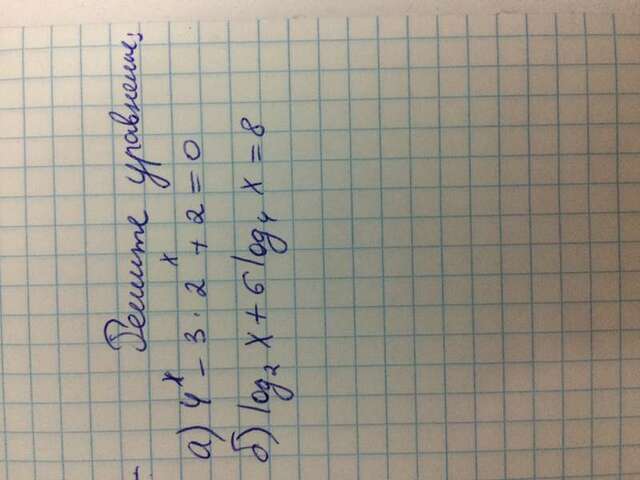 Решите уравнение:
а) 4^x - 3 · 2^x + 2 = 0
б) log₂ x + 6 log₄ x = 8